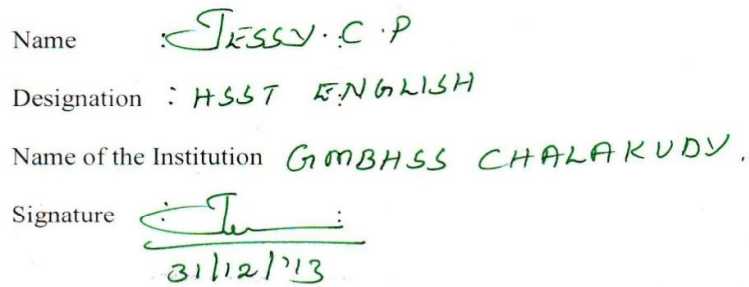 Name : JESSY. C. P
Designation : HSST ENGLISH
Name of the Institution GMBHSS CHALAKUDY.
Signature :
31/12/'13